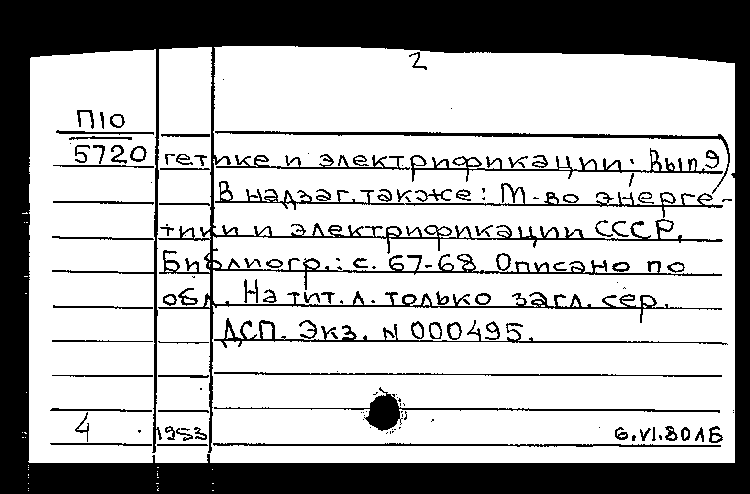 2
П10
5720 гетике и электрификации; Вып.9).
В надзаг. также: М-во энерге-
тики и электрификации СССР.
Библиогр.: с. 67-68. Описано по
обл. На тит. л. только загл. сер.
ДСП. Экз. N 000495.
4 1953 6.VI.80 АБ